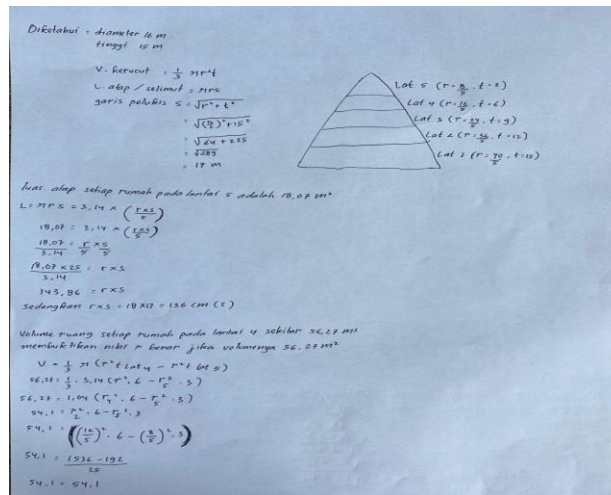 Diketahui = diameter 16 m
tinggi 15 m
V. kerucut = 1/3 πr²t
L. atap / selimut = πrs
garis pelukis s = √r² + t²
= √(16/2)² + 15²
= √64 + 225
= √289
= 17 m
Lat 5 (r = 8/5, t = 3)
Lat 4 (r = 16/5, t = 6)
Lat 3 (r = 24/5, t = 9)
Lat 2 (r = 36/5, t = 12)
Lat 1 (r = 40/5, t = 15)
luas atap setiap rumah pada lantai 5 adalah 18,07 m²
L = πrs = 3,14 × (r×s/5)
18,07 = 3,14 × (r×s/5)
18,07/3,14 = r/5 × s/5
18,07 × 25/3,14 = r × s
143,86 = r × s
Sedangkan r × s = 18 × 17 = 136 cm (s)
Volume ruang setiap rumah pada lantai 4 sekitar 56,27 m²
membuktikan nilai r benar jika volumenya 56,27 m²
V = 1/3 π (r²t Lat 4 – r²t lat 5)
56,27 = 1/3 . 3,14 (r² . 6 – r²/5 . 3)
56,27 = 1,04 (r₄² . 6 – r²/5 . 3)
54,1 = . 6 – r₅² . 3
54,1 = ((16/5)² . 6 – (8/5)² . 3)
54,1 = 1536 – 192/25
54,1 = 54,1